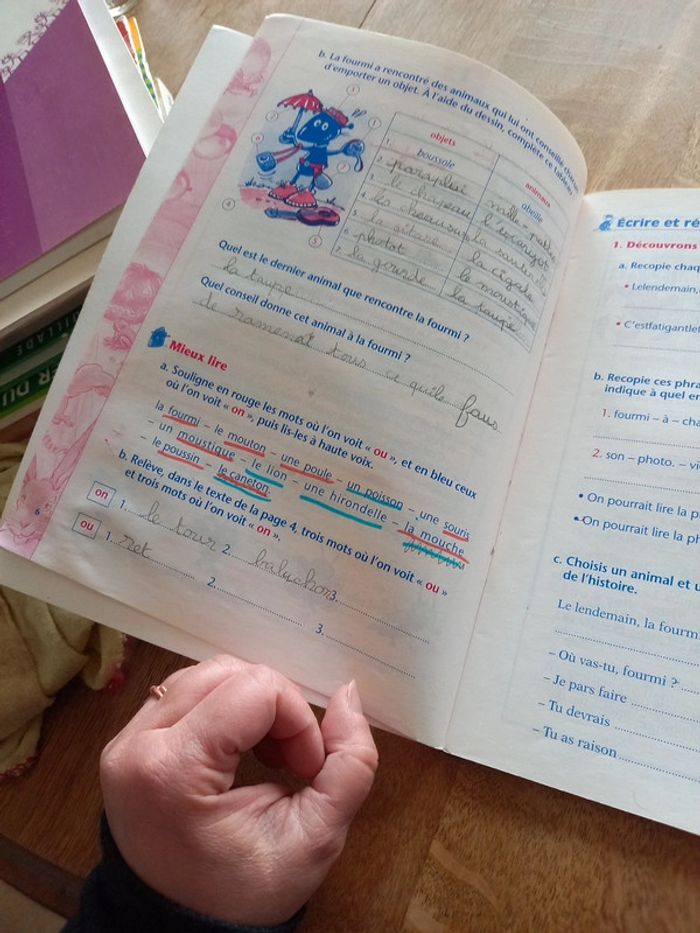 b. La fourmi a rencontré des animaux qui lui ont conseillé
d'emporter un objet. À l'aide du dessin, complète ce tableau
objets
animaux
1. boussole
abeille
2. parapluie
mille-pattes
3. le chapeau
l'escargot
4.
5. la gitare
la cigale
6. photot
le moustique
7. la gourde
la taupe
Quel est le dernier animal que rencontre la fourmi ?
la taupe
Quel conseil donne cet animal à la fourmi ?
de ramenat tous ce quile faus
Mieux lire
a. Souligne en rouge les mots où l'on voit « ou », et en bleu ceux
où l'on voit « on », puis lis-les à haute voix.
la fourmi – le mouton – une poule – un poisson – une souris
– un moustique – le lion – une hirondelle – la mouche
– le poussin – le caneton.
b. Relève, dans le texte de la page 4, trois mots où l'on voit « ou »
et trois mots où l'on voit « on ».
on 1. le tour 2. baluchon 3.
ou 1. ret 2. 3.
6
Écrire et ré
1. Découvrons
a. Recopie cha
• Lelendemain,
• C'estfatigantlet
b. Recopie ces phra
indique à quel en
1. fourmi – à – cha
2. son – photo. – v
• On pourrait lire la p
• On pourrait lire la ph
c. Choisis un animal et u
de l'histoire.
Le lendemain, la fourm
– Où vas-tu, fourmi ?
– Je pars faire
– Tu devrais
– Tu as raison